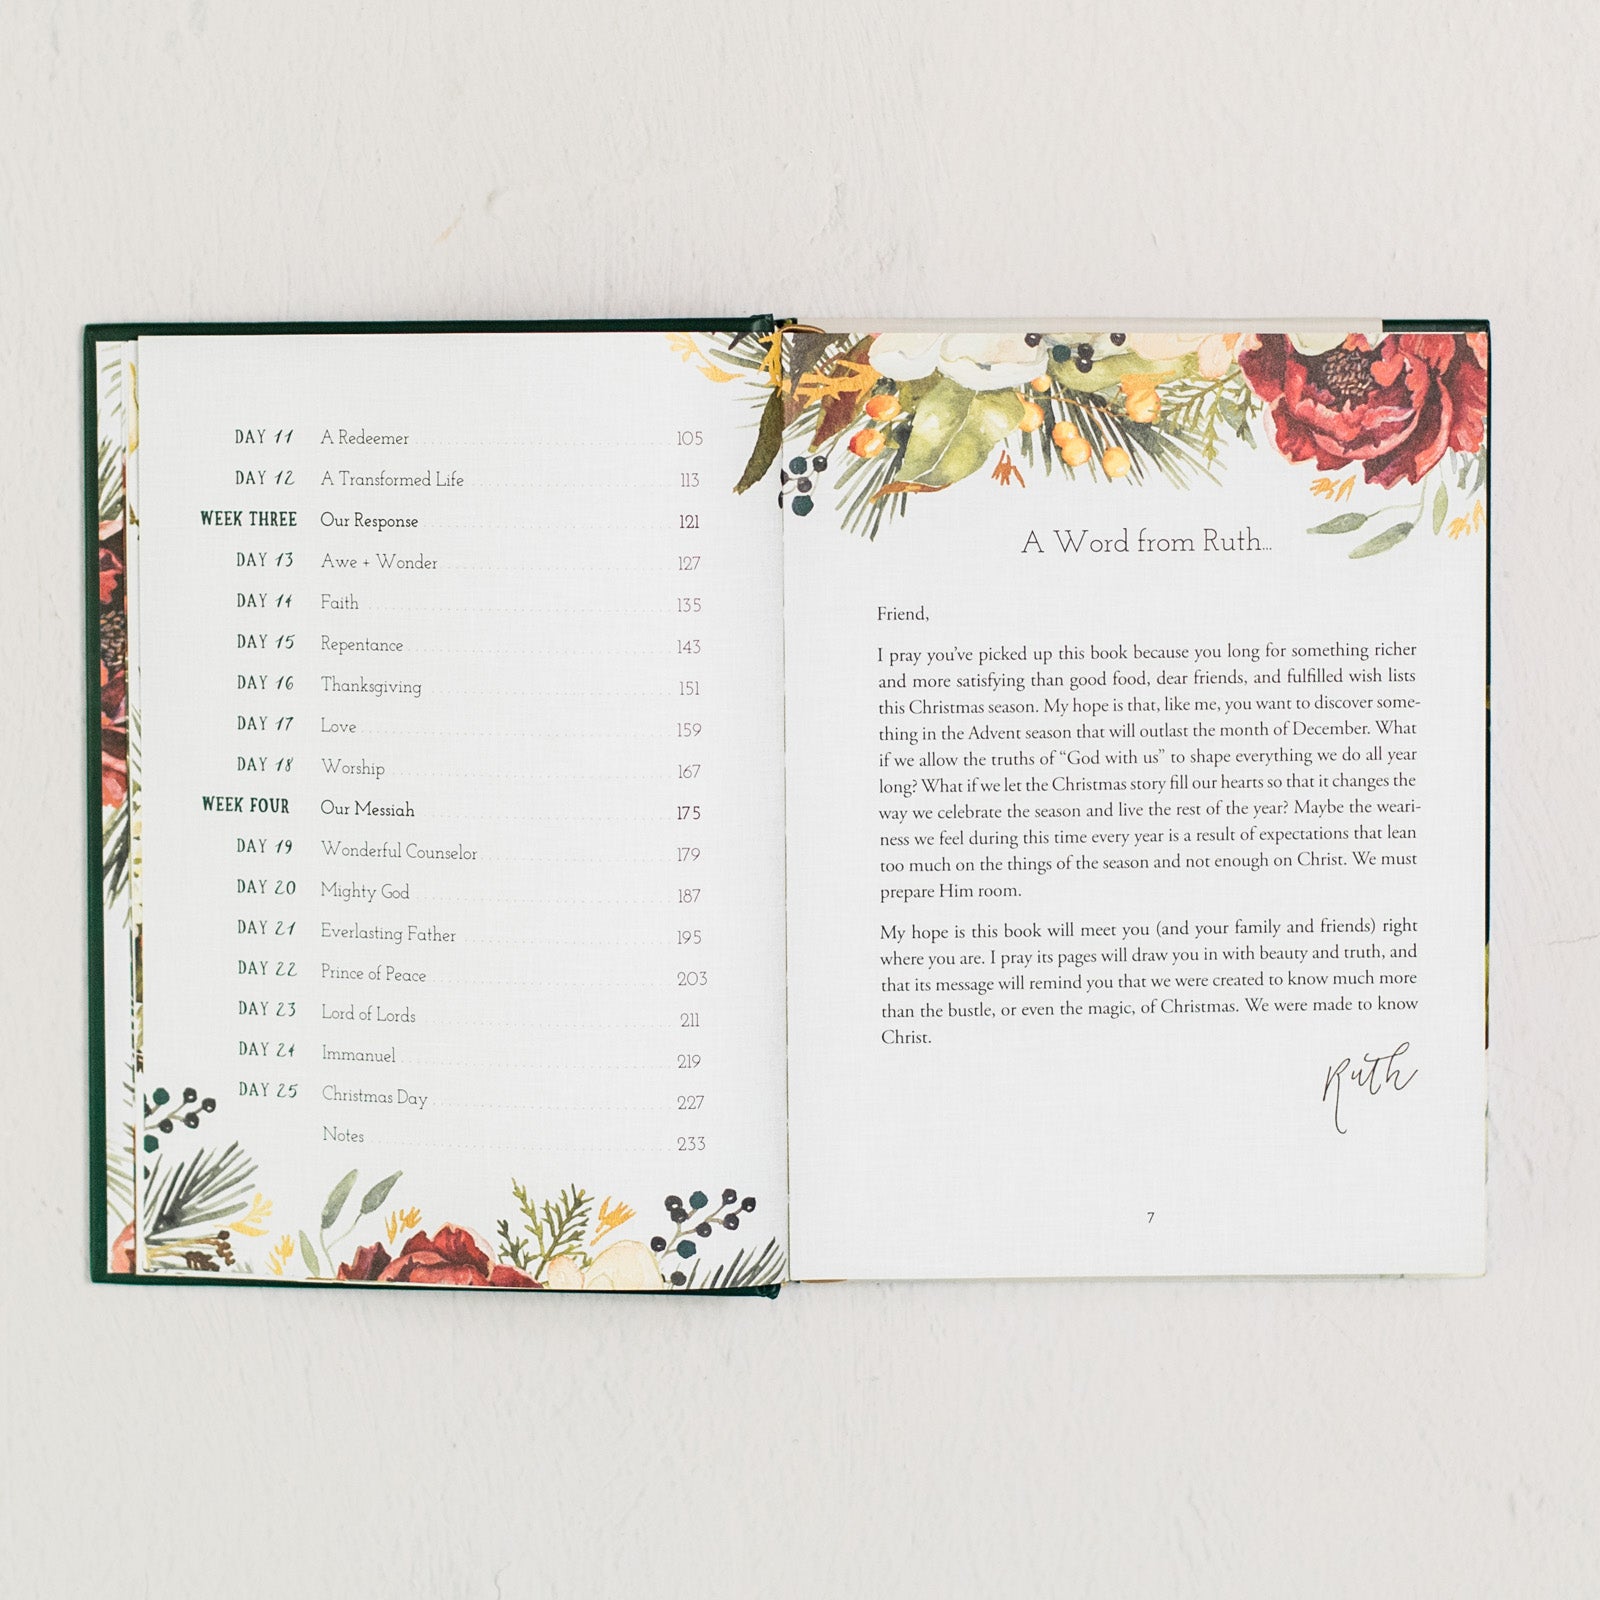 DAY 11 A Redeemer 105
DAY 12 A Transformed Life 113
WEEK THREE Our Response 121
DAY 13 Awe + Wonder 127
DAY 14 Faith 135
DAY 15 Repentance 143
DAY 16 Thanksgiving 151
DAY 17 Love 159
DAY 18 Worship 167
WEEK FOUR Our Messiah 175
DAY 19 Wonderful Counselor 179
DAY 20 Mighty God 187
DAY 21 Everlasting Father 195
DAY 22 Prince of Peace 203
DAY 23 Lord of Lords 211
DAY 24 Immanuel 219
DAY 25 Christmas Day 227
Notes 233
A Word from Ruth...
Friend,
I pray you've picked up this book because you long for something richer
and more satisfying than good food, dear friends, and fulfilled wish lists
this Christmas season. My hope is that, like me, you want to discover some-
thing in the Advent season that will outlast the month of December. What
if we allow the truths of “God with us” to shape everything we do all year
long? What if we let the Christmas story fill our hearts so that it changes the
way we celebrate the season and live the rest of the year? Maybe the weari-
ness we feel during this time every year is a result of expectations that lean
too much on the things of the season and not enough on Christ. We must
prepare Him room.
My hope is this book will meet you (and your family and friends) right
where you are. I pray its pages will draw you in with beauty and truth, and
that its message will remind you that we were created to know much more
than the bustle, or even the magic, of Christmas. We were made to know
Christ.
Ruth
7